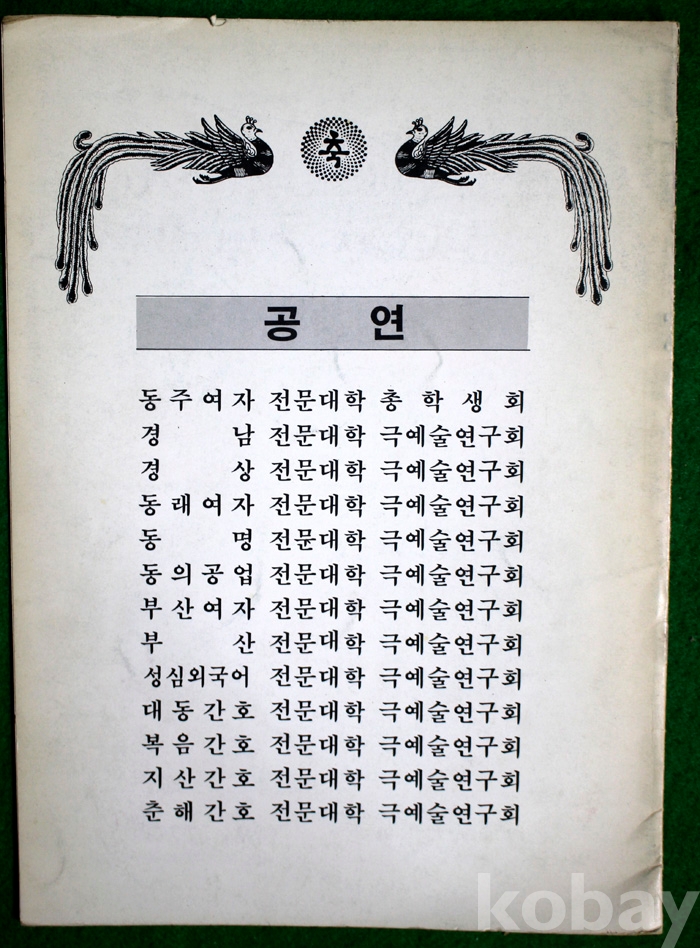 축
공 연
동주여자 전문대학 총학생회
경 남 전문대학 극예술연구회
경 상 전문대학 극예술연구회
동래여자 전문대학 극예술연구회
동 명 전문대학 극예술연구회
동의공업 전문대학 극예술연구회
부산여자 전문대학 극예술연구회
부 산 전문대학 극예술연구회
성심외국어 전문대학 극예술연구회
대동간호 전문대학 극예술연구회
복음간호 전문대학 극예술연구회
지산간호 전문대학 극예술연구회
춘해간호 전문대학 극예술연구회
kobay